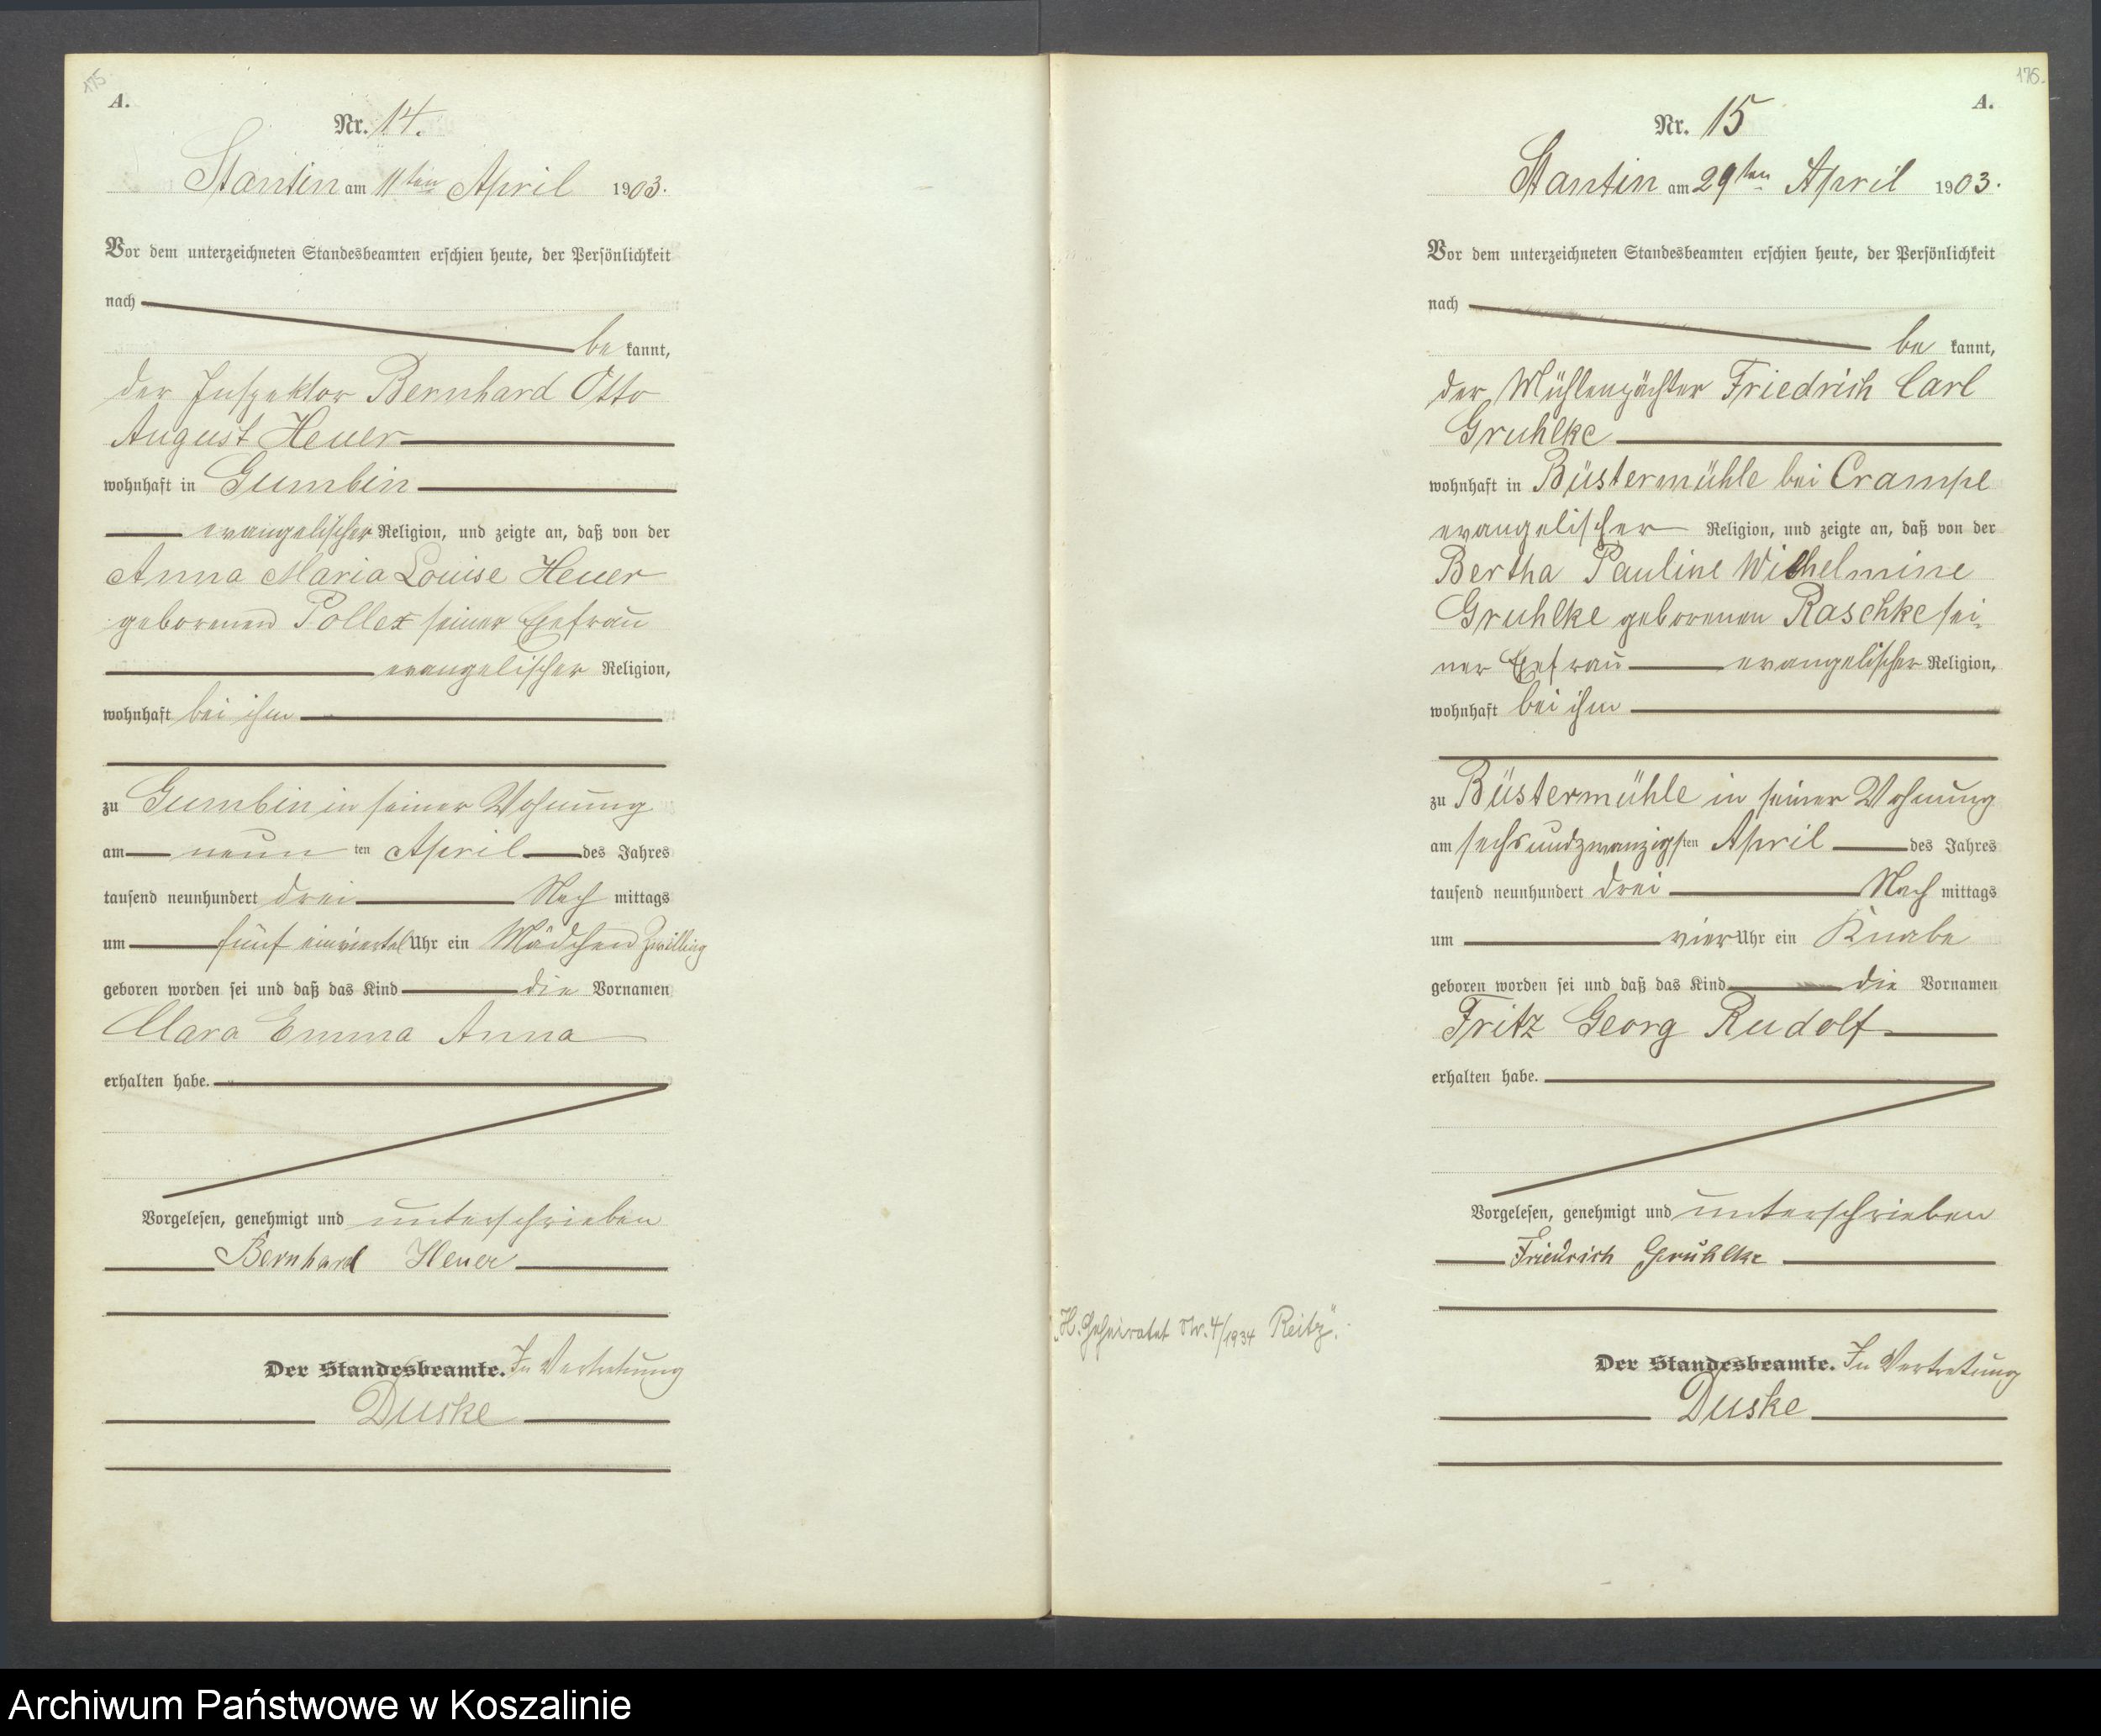 175
A.
Nr. 14.
Stantin am 11ten April 1903.
Vor dem unterzeichneten Standesbeamten erschien heute, der Persönlichkeit
nach
be kannt,
der Inspektor Bernhard Otto
August Heuer
wohnhaft in Gumbin
evangelischer Religion, und zeigte an, daß von der
Anna Maria Louise Heuer
geborenen Pollex seiner Ehefrau
evangelischer Religion,
wohnhaft bei ihm
zu Gumbin in seiner Wohnung
am neun ten April des Jahres
tausend neunhundert drei Nach mittags
um fünf einviertel Uhr ein Mädchen Zwilling
geboren worden sei und daß das Kind die Vornamen
Clara Emma Anna
erhalten habe.
Vorgelesen, genehmigt und unterschrieben
Bernhard Heuer
Der Standesbeamte. In Vertretung
Duske
176.
A.
Nr. 15
Stantin am 29ten April 1903.
Vor dem unterzeichneten Standesbeamten erschien heute, der Persönlichkeit
nach
be kannt,
der Mühlenpächter Friedrich Carl
Gruhlke
wohnhaft in Büstermühle bei Crampe
evangelischer Religion, und zeigte an, daß von der
Bertha Pauline Wilhelmine
Gruhlke geborenen Raschke sei-
ner Ehefrau evangelischer Religion,
wohnhaft bei ihm
zu Büstermühle in seiner Wohnung
am sechsundzwanzigsten April des Jahres
tausend neunhundert drei Nach mittags
um vier Uhr ein Knabe
geboren worden sei und daß das Kind die Vornamen
Fritz Georg Rudolf
erhalten habe.
Vorgelesen, genehmigt und unterschrieben
Friedrich Gruhlke
„H. Geheiratet Nr. 4/1934 Reitz".
Der Standesbeamte. In Vertretung
Duske
Archiwum Państwowe w Koszalinie